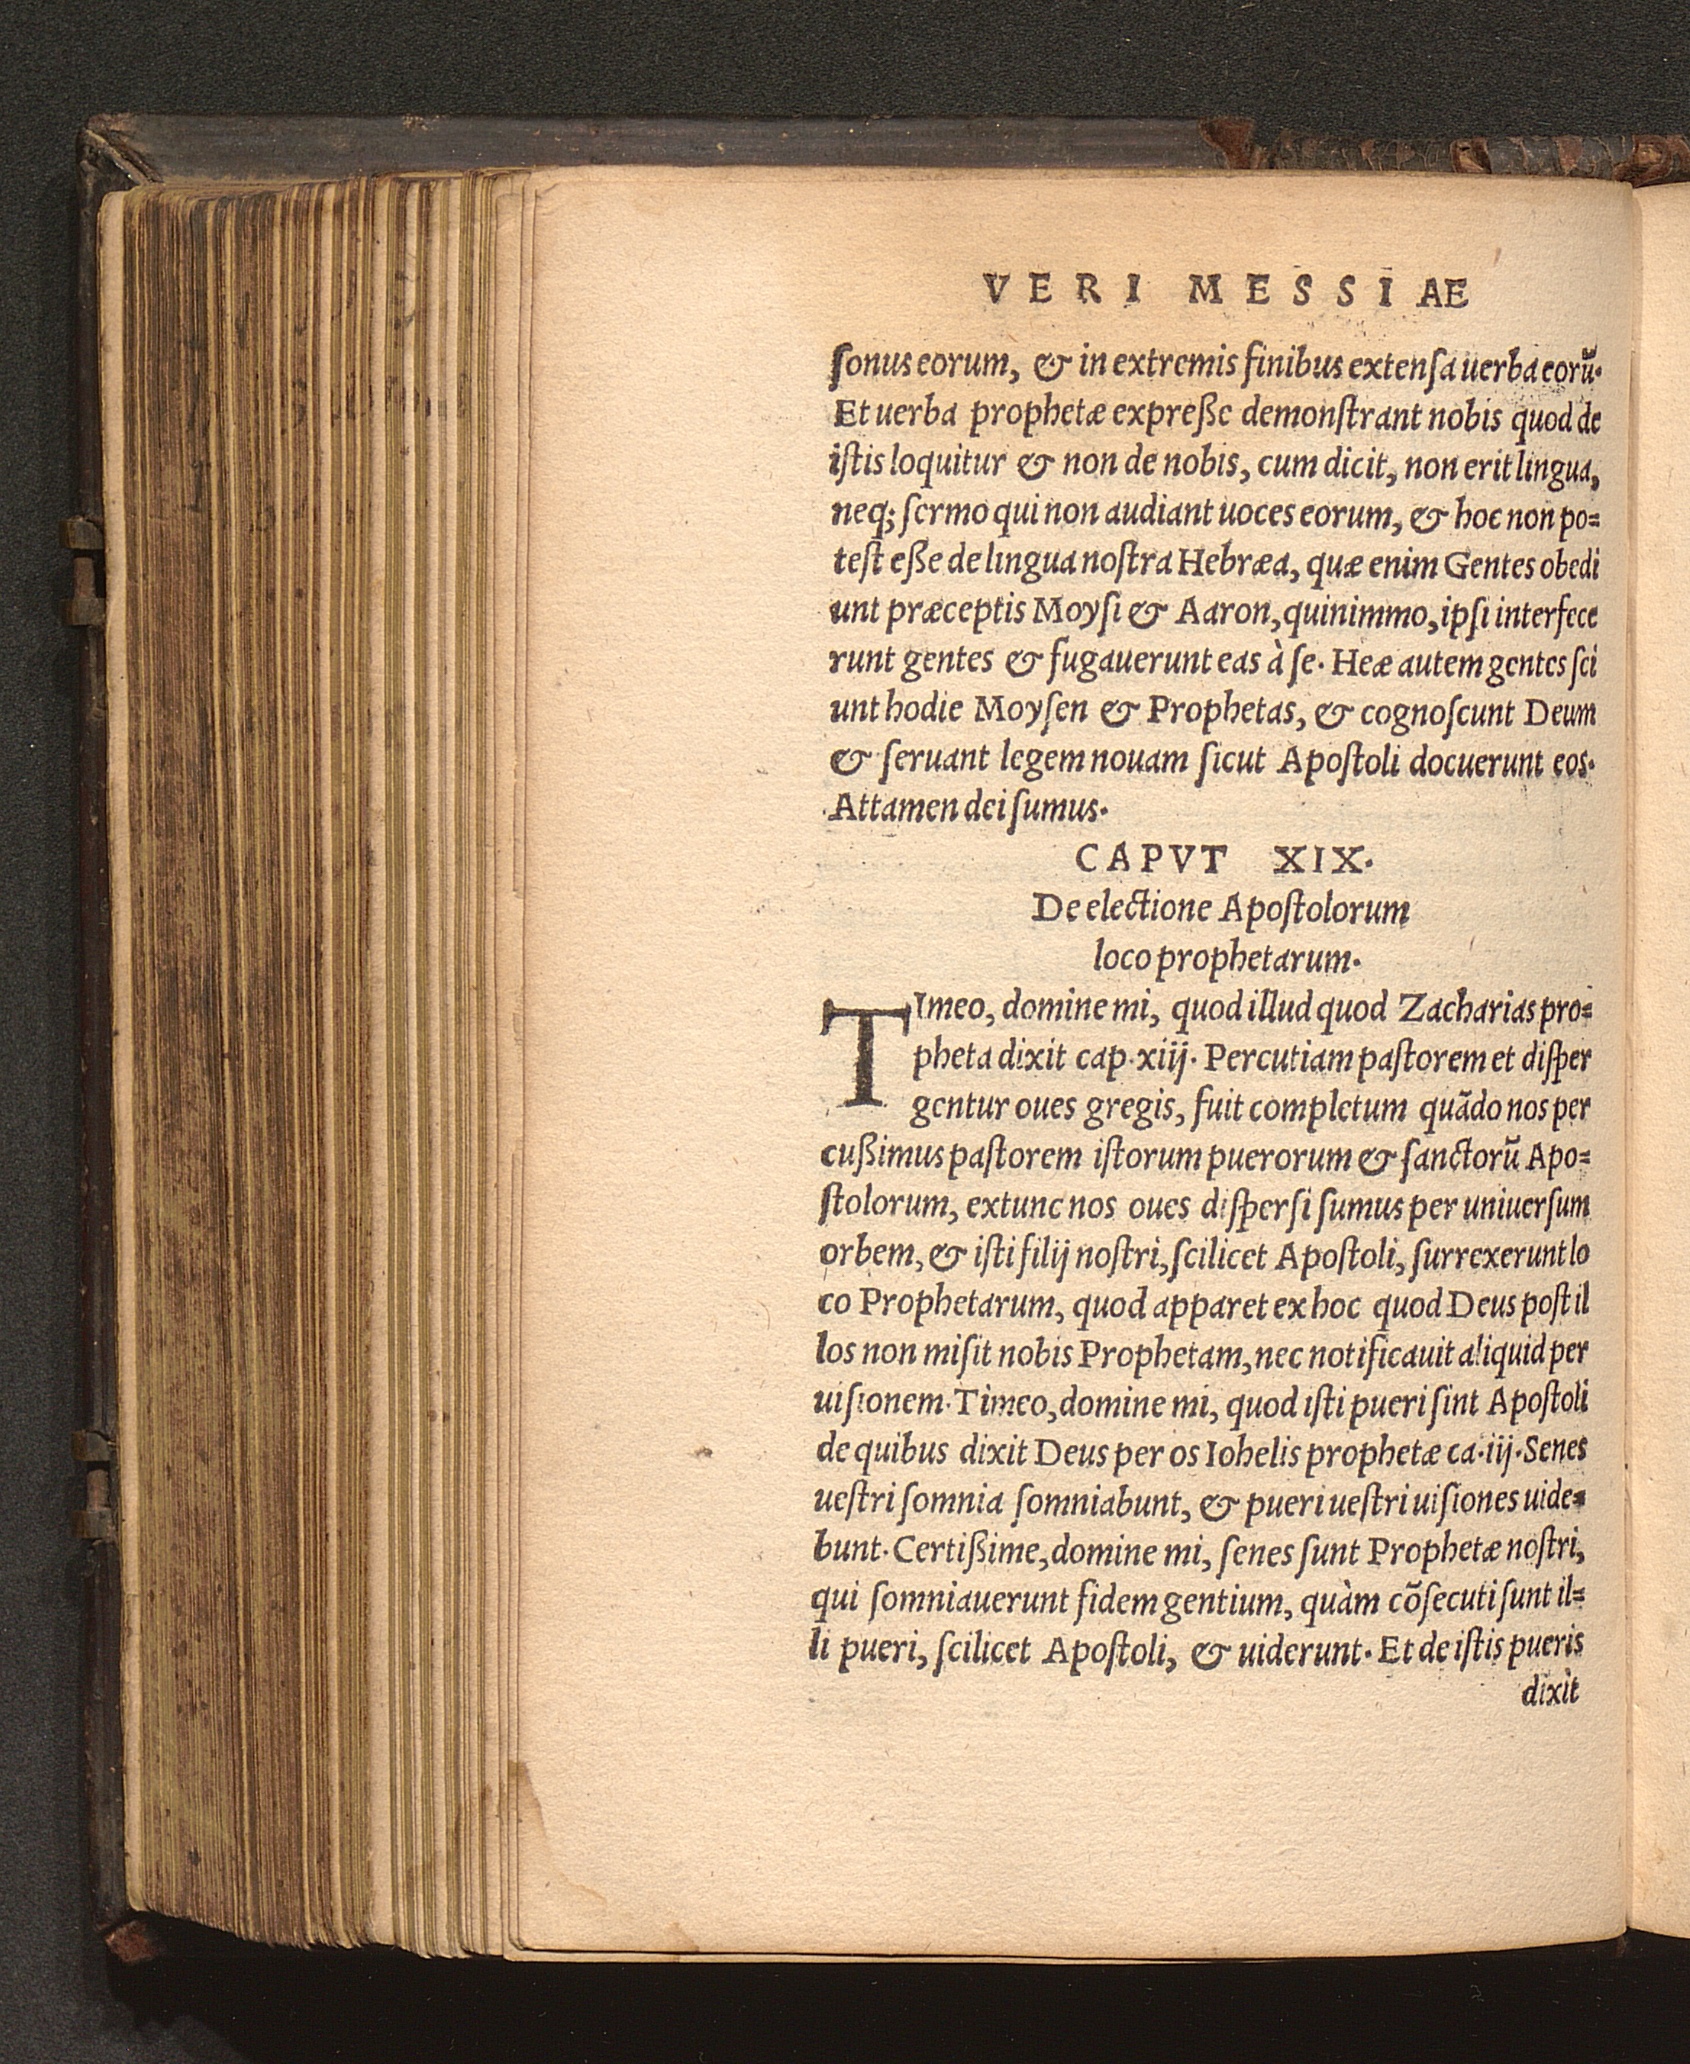 VERI MESSIAE
ſonus eorum, & in extremis finibus extenſa uerba eorũ.
Et uerba prophetæ expreße demonſtrant nobis quod de
iſtis loquitur & non de nobis, cum dicit, non erit lingua,
neq; ſermo qui non audiant uoces eorum, & hoc non po=
teſt eße de lingua noſtra Hebræa, quæ enim Gentes obedi
unt præceptis Moyſi & Aaron, quinimmo, ipſi interfece
runt gentes & fugauerunt eas à ſe. Heæ autem gentes ſci
unt hodie Moyſen & Prophetas, & cognoſcunt Deum
& ſeruant legem nouam ſicut Apoſtoli docuerunt eos.
Attamen dei ſumus.
CAPVT XIX.
De electione Apoſtolorum
loco prophetarum.
TImeo, domine mi, quod illud quod Zacharias pro=
pheta dixit cap. xiij. Percutiam paſtorem et diſper
gentur oues gregis, fuit completum quãdo nos per
cußimus paſtorem iſtorum puerorum & ſanctorũ Apo=
ſtolorum, extunc nos oues diſperſi ſumus per uniuerſum
orbem, & iſti filij noſtri, ſcilicet Apoſtoli, ſurrexerunt lo
co Prophetarum, quod apparet ex hoc quod Deus poſt il
los non miſit nobis Prophetam, nec notificauit aliquid per
uiſionem. Timeo, domine mi, quod iſti pueri ſint Apoſtoli
de quibus dixit Deus per os Iohelis prophetæ ca. iij. Senes
ueſtri ſomnia ſomniabunt, & pueri ueſtri uiſiones uide=
bunt. Certißime, domine mi, ſenes ſunt Prophetæ noſtri,
qui ſomniauerunt fidem gentium, quàm cõſecuti ſunt il=
li pueri, ſcilicet Apoſtoli, & uiderunt. Et de iſtis pueris
dixit